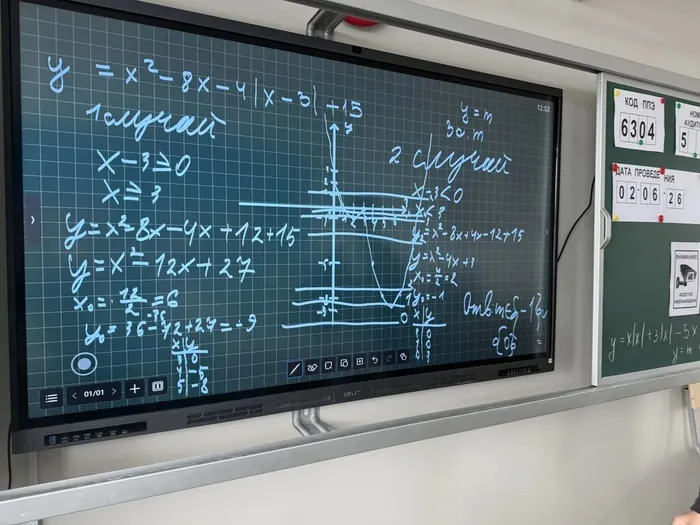 y = x² − 8x − 4|x − 3| + 15
1 случай
x − 3 ≥ 0
x ≥ 3
y = x² − 8x − 4x + 12 + 15
y = x² − 12x + 27
x₀ = 12/2 = 6
x y
y = m
3 a m
2 случай
x − 3 < 0
x < 3
y = x² − 8x + 4x − 12 + 15
y = x² − 4x + 3
x₀ = 4/2 = 2
y₀ = −1
x y
y
12:52
01/01
КОД ППЭ
6304
НОМ
АУДИТО
5
ДАТА ПРОВЕДЕНИЯ
02 06 26
ВНИМАНИЕ!
y = x|x| + 3|x| − 5x
y = m